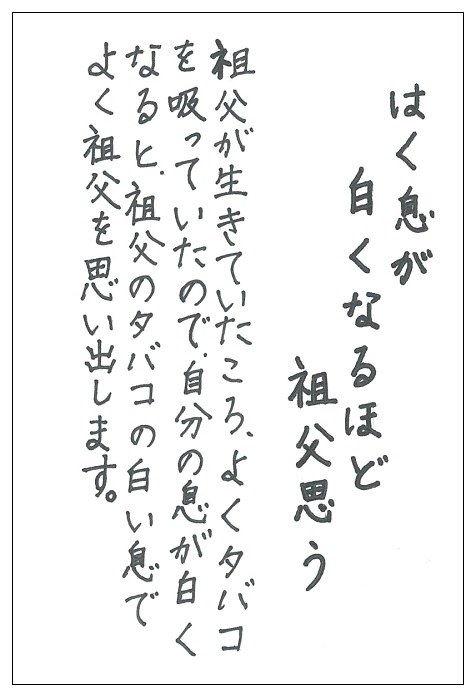 はく息が
白くなるほど
祖父思う
祖父が生きていたころ、よくタバコ
を吸っていたので、自分の息が白く
なると、祖父のタバコの白い息で
よく祖父を思い出します。